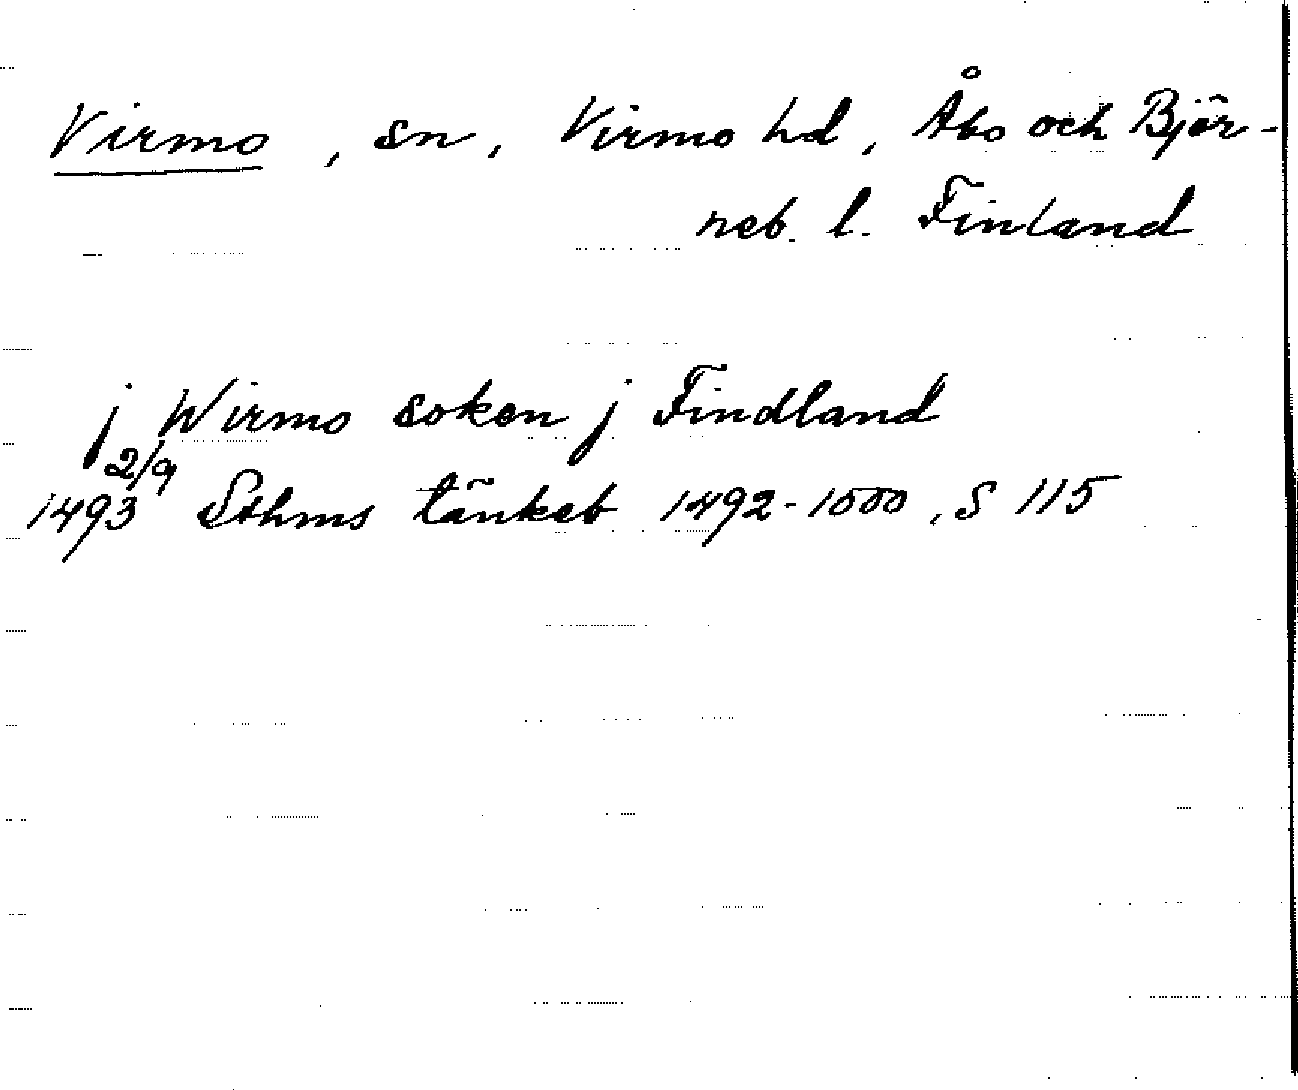 Virmo, sn, Virmo hd, Åbo och Björ-
neb. l. Finland
j Wirmo soken j Findland
2/9
1493 Sthms tänkeb 1492-1500, S 115